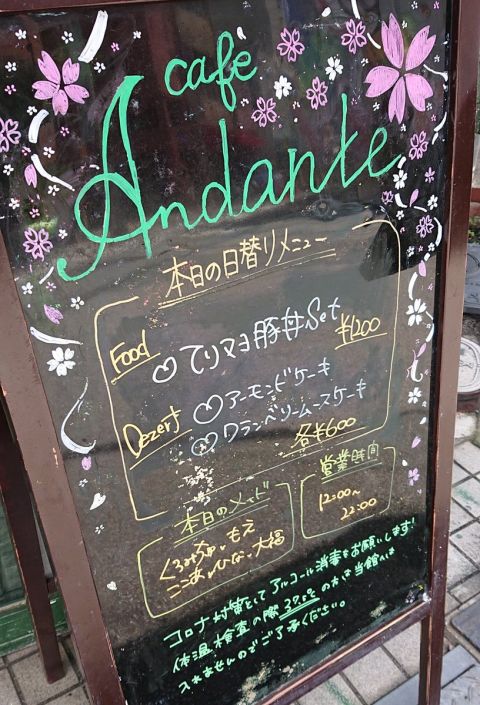 cafe
Andante
本日の日替りメニュー
Food
♡てりマヨ豚丼Set
¥1200
Dezert
♡アーモンドケーキ
♡クランベリームースケーキ
各¥600
本日のメイド
くるみ
もえ
ここあ ひな 大福
営業時間
12:00~
22:00
コロナ対策としてアルコール消毒をお願いします!
体温検査の際37.5℃の方は当館へは
入れませんのでご了承ください。